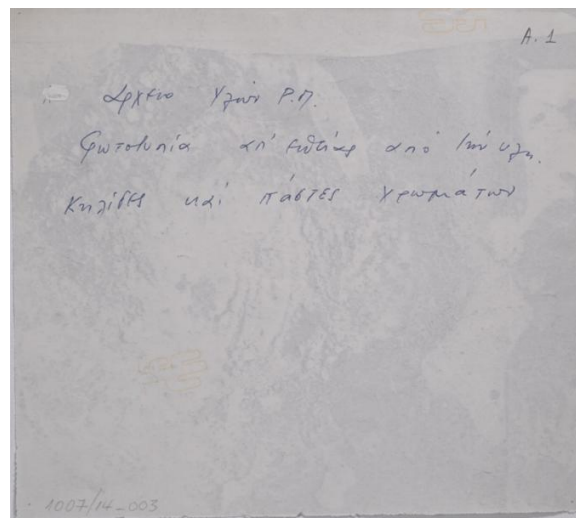 A.1
Αρχείο Υλών Ρ.Π.
Φωτοτυπία απ' ευθείας από τήν ύλη.
Κηλίδες καί πάστες χρωμάτων
1007/14_003